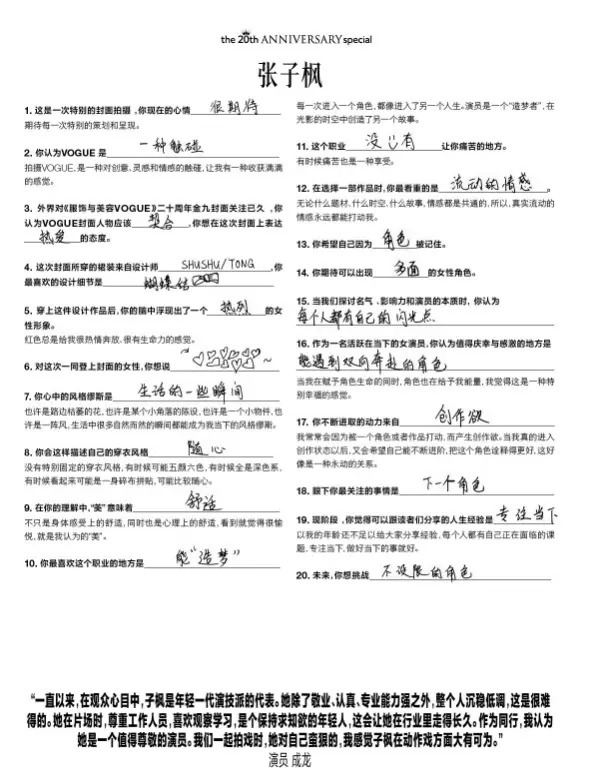 the 20th ANNIVERSARY special
张子枫
1. 这是一次特别的封面拍摄,你现在的心情 很期待
期待每一次特别的策划和呈现。
2. 你认为VOGUE 是 一种触碰
拍摄VOGUE,是一种对创意、灵感和情感的触碰,让我有一种收获满满
的感觉。
3. 外界对《服饰与美容VOGUE》二十周年金九封面关注已久 ,你
认为VOGUE封面人物应该 契合 ,你想在这次封面上表达
热爱 的态度。
4. 这次封面所穿的裙装来自设计师 SHUSHU/TONG ,你
最喜欢的设计细节是 蝴蝶结
5. 穿上这件设计作品后,你的脑中浮现出了一个 热烈 的女
性形象。
红色总是给我很热情奔放、很有生命力的感觉。
6. 对这次一同登上封面的女性,你想说
7. 你心中的风格缪斯是 生活的一些瞬间
也许是路边枯萎的花,也许是某个小角落的陈设,也许是一个小物件,也
许是一阵风,生活中很多自然而然的瞬间都能成为我当下的风格缪斯。
8. 你会这样描述自己的穿衣风格 随心
没有特别固定的穿衣风格,有时候可能五颜六色,有时候全是深色系,
有时候看起来可能是一身碎布拼贴,可能比较随心。
9. 在你的理解中,“美”意味着 舒适
不只是身体感受上的舒适,同时也是心理上的舒适,看到就觉得很愉
悦,就是我认为的“美”。
10. 你最喜欢这个职业的地方是 能“造梦”
每一次进入一个角色,都像进入了另一个人生。演员是一个“造梦者”,在
光影的时空中创造了另一个故事。
11. 这个职业 没有 让你痛苦的地方。
有时候痛苦也是一种享受。
12. 在选择一部作品时,你最看重的是 流动的情感 。
无论什么题材,什么时空,什么故事,情感都是共通的,所以,真实流动的
情感永远都能打动我。
13. 你希望自己因为 角色 被记住。
14. 你期待可以出现 多面 的女性角色。
15. 当我们探讨名气 、影响力和演员的本质时, 你认为
每个人都有自己的闪光点
16. 作为一名活跃在当下的女演员,你认为值得庆幸与感激的地方是
能遇到双向奔赴的角色
当我在赋予角色生命的同时,角色也在给予我能量,我觉得这是一种特
别幸福的感觉。
17. 你不断进取的动力来自 创作欲
我常常会因为被一个角色或者作品打动,而产生创作欲。当我真的进入
创作状态以后,又会希望自己能不断进阶,把这个角色诠释得更好,这好
像是一种永动的关系。
18. 眼下你最关注的事情是 下一个角色
19. 现阶段 ,你觉得可以跟读者们分享的人生经验是 专注当下
以我的年龄还不足以给大家分享经验,每个人都有自己正在面临的课
题,专注当下,做好当下的事就好。
20. 未来,你想挑战 不设限的角色
“一直以来,在观众心目中,子枫是年轻一代演技派的代表。她除了敬业、认真、专业能力强之外,整个人沉稳低调,这是很难
得的。她在片场时,尊重工作人员,喜欢观察学习,是个保持求知欲的年轻人,这会让她在行业里走得长久。作为同行,我认为
她是一个值得尊敬的演员。我们一起拍戏时,她对自己蛮狠的,我感觉子枫在动作戏方面大有可为。”
演员 成龙